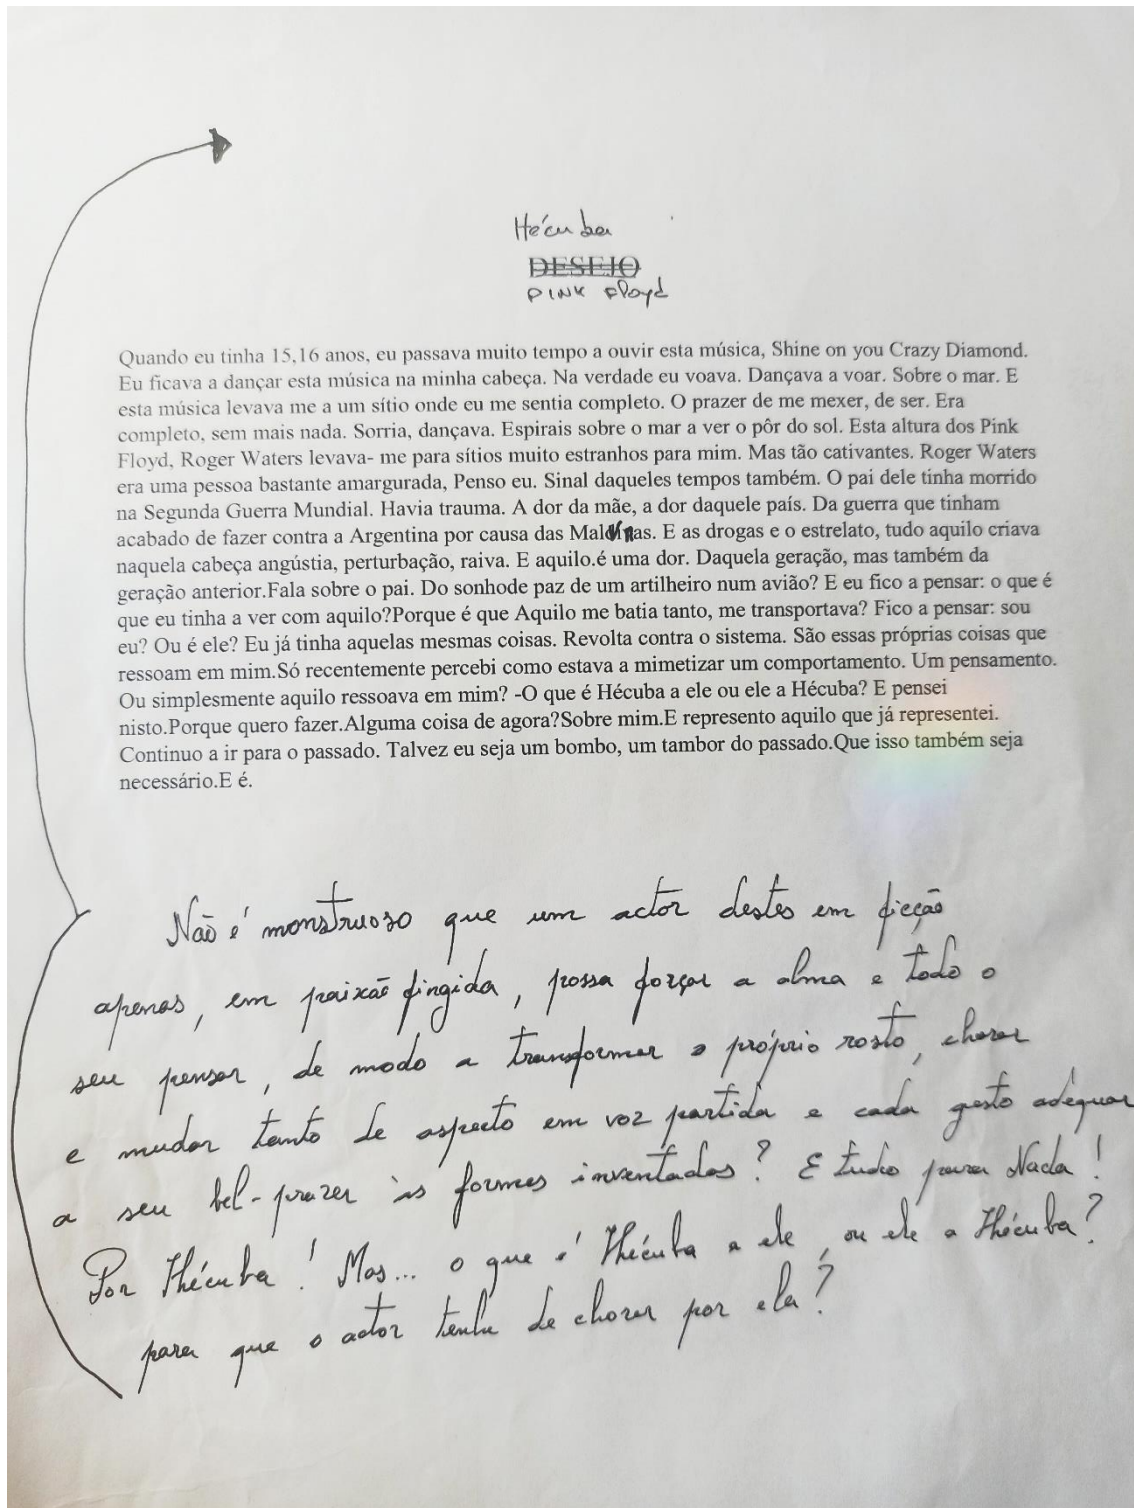 Hécuba
DESEJO
PINK Floyd
Quando eu tinha 15,16 anos, eu passava muito tempo a ouvir esta música, Shine on you Crazy Diamond.
Eu ficava a dançar esta música na minha cabeça. Na verdade eu voava. Dançava a voar. Sobre o mar. E
esta música levava me a um sítio onde eu me sentia completo. O prazer de me mexer, de ser. Era
completo, sem mais nada. Sorria, dançava. Espirais sobre o mar a ver o pôr do sol. Esta altura dos Pink
Floyd, Roger Waters levava- me para sítios muito estranhos para mim. Mas tão cativantes. Roger Waters
era uma pessoa bastante amargurada, Penso eu. Sinal daqueles tempos também. O pai dele tinha morrido
na Segunda Guerra Mundial. Havia trauma. A dor da mãe, a dor daquele país. Da guerra que tinham
acabado de fazer contra a Argentina por causa das Malvinas. E as drogas e o estrelato, tudo aquilo criava
naquela cabeça angústia, perturbação, raiva. E aquilo.é uma dor. Daquela geração, mas também da
geração anterior.Fala sobre o pai. Do sonhode paz de um artilheiro num avião? E eu fico a pensar: o que é
que eu tinha a ver com aquilo?Porque é que Aquilo me batia tanto, me transportava? Fico a pensar: sou
eu? Ou é ele? Eu já tinha aquelas mesmas coisas. Revolta contra o sistema. São essas próprias coisas que
ressoam em mim.Só recentemente percebi como estava a mimetizar um comportamento. Um pensamento.
Ou simplesmente aquilo ressoava em mim? -O que é Hécuba a ele ou ele a Hécuba? E pensei
nisto.Porque quero fazer.Alguma coisa de agora?Sobre mim.E represento aquilo que já representei.
Continuo a ir para o passado. Talvez eu seja um bombo, um tambor do passado.Que isso também seja
necessário.E é.
Não é monstruoso que um actor destes em ficção
apenas, em paixão fingida, possa forçar a alma e todo o
seu pensar, de modo a transformar o próprio rosto, chorar
e mudar tanto de aspecto em voz partida e cada gesto adequar
a seu bel-prazer às formas inventadas? E tudo para Nada!
Por Hécuba! Mas... o que é Hécuba a ele, ou ele a Hécuba?
para que o actor tenha de chorar por ela?